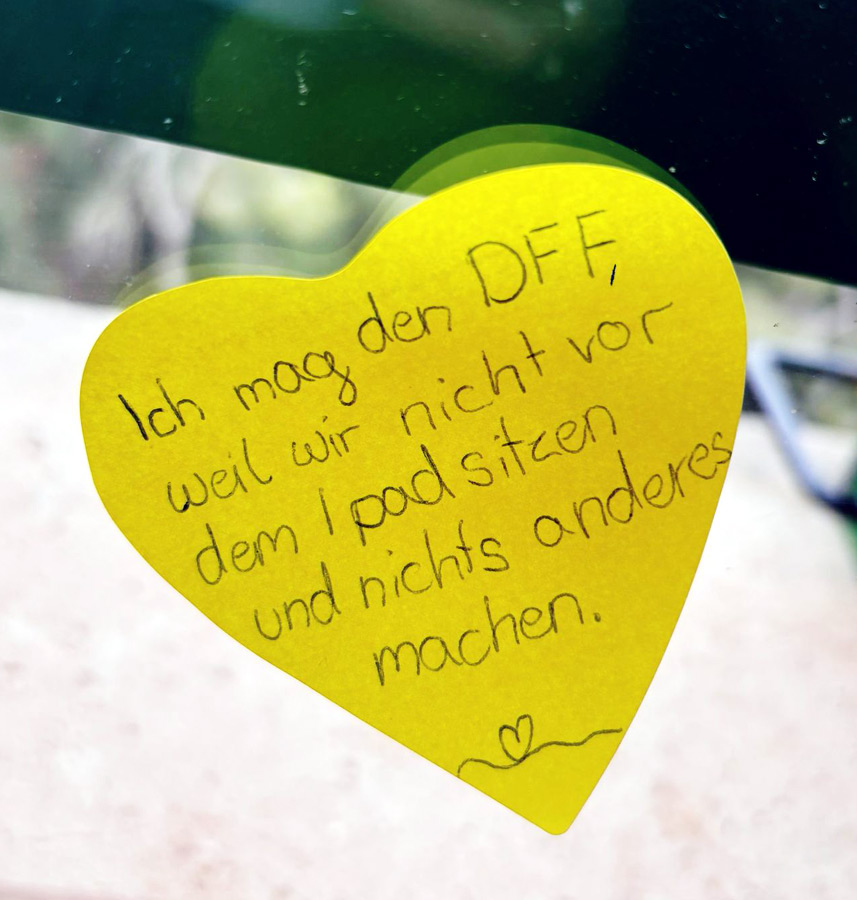 Ich mag den DFF,
weil wir nicht vor
dem Ipad sitzen
und nichts anderes
machen.